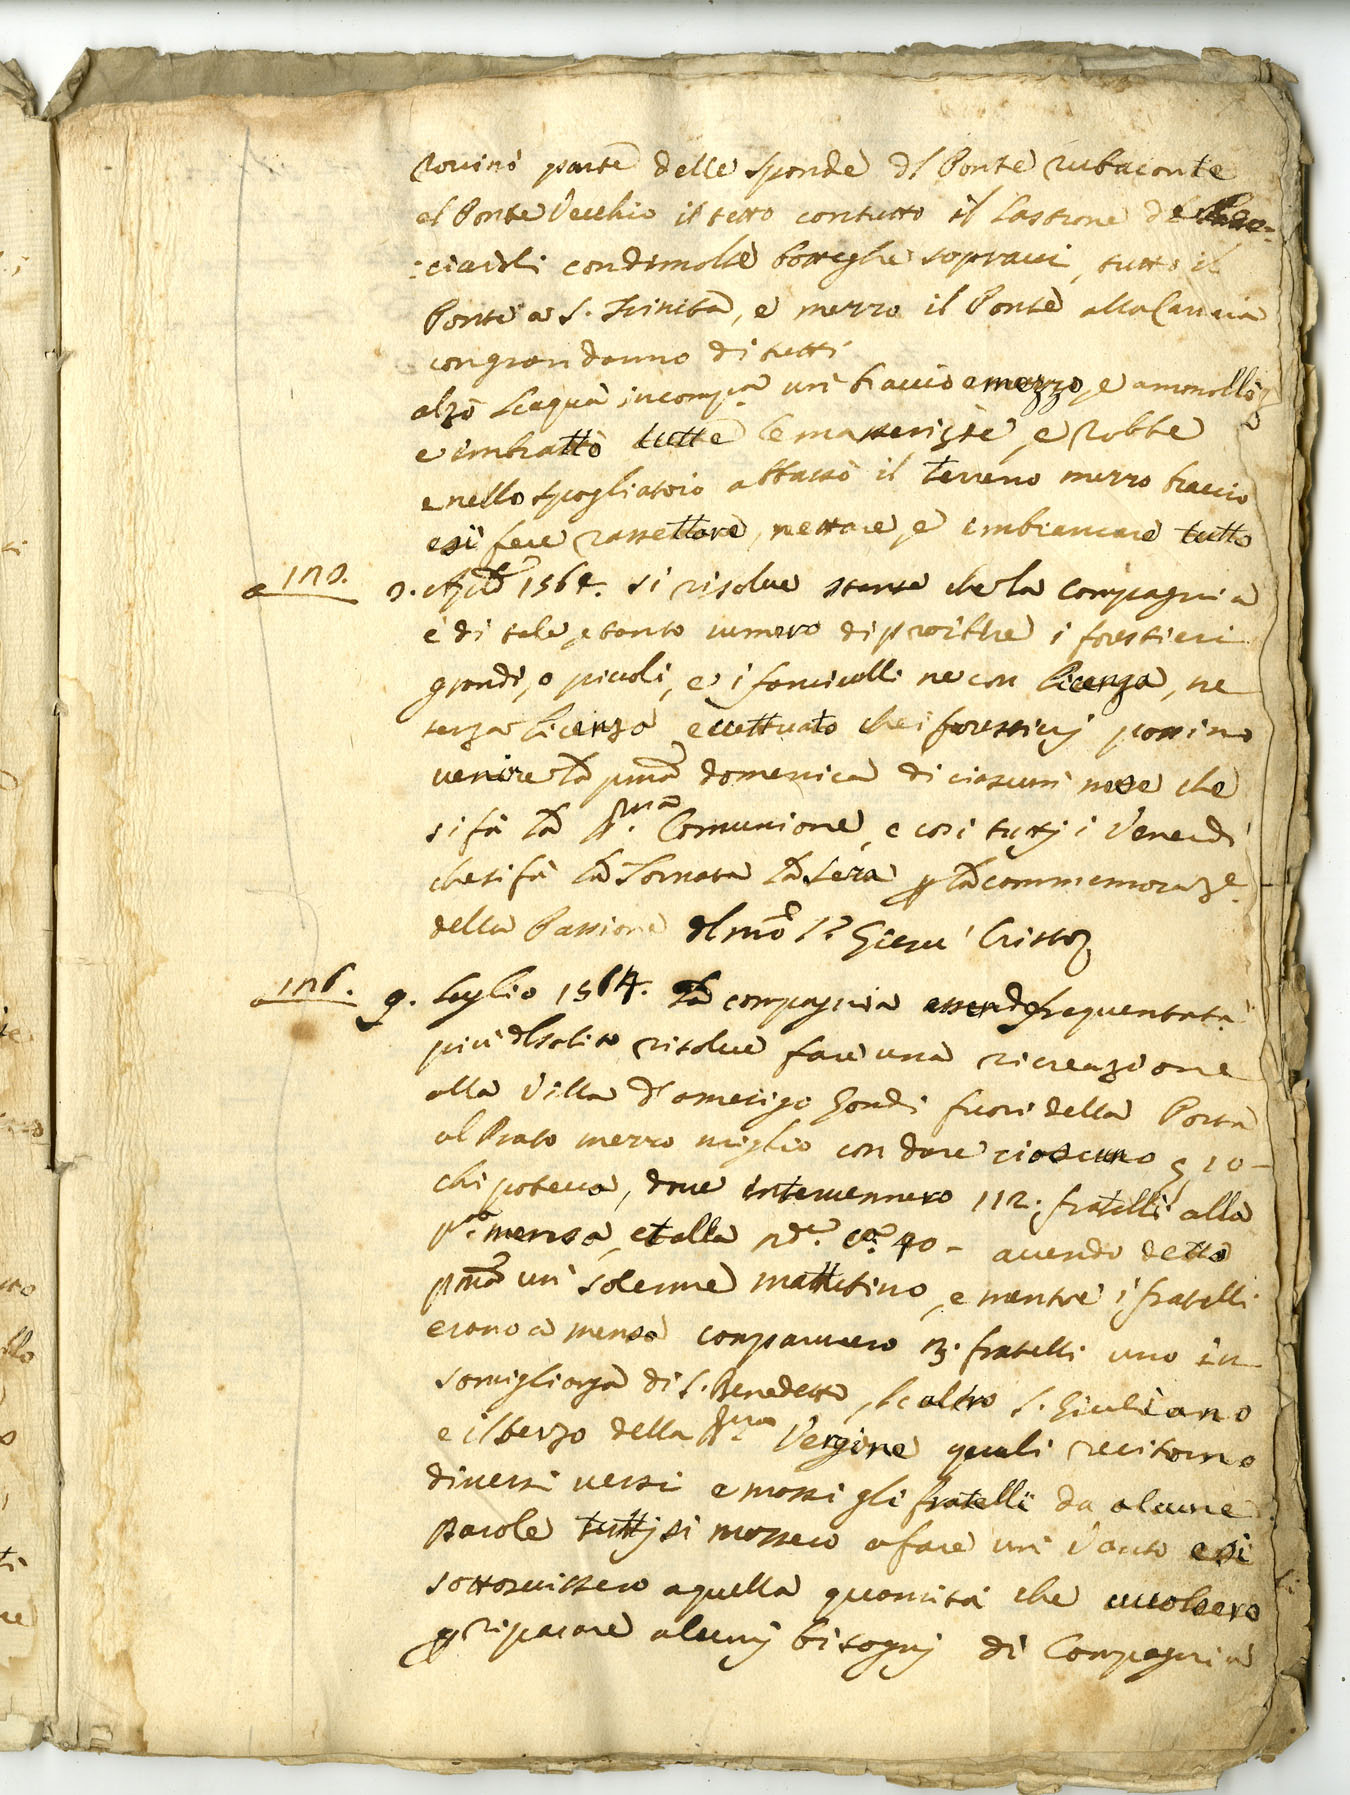 Rovinò parte delle sponde dl Ponte rubaconte
el Ponte Vecchio il tetto contutto il Lastrone de
:ciaioli condimolte botteghe sopravi, tutto il
Ponte a S. Trinita, e mezzo il Ponte alla Carraia
congran danno di tutti
alzò Lacqua incomp.a un braccio e mezzo, e ammollò
e imbrattò tutte le masserizie, e robbe
e nello spogliatoio abbassò il terreno mezzo braccio
e si fece rassettare, nettare, e imbiancare tutto
a 120. 2. Aple 1564. si risolve stante che la Compagnia
è di tale, e tanto numero di proibire i forestieri
grandi, o piccoli, e i fanciulli ne con licenza, ne
senza licenza eccettuato che i forestierj possino
venire la pma domenica di ciascun mese che
si fà la ss.ma Comunione, e così tuttj i Venerdì
che si fà la Tornata la sera p la commemoraz.e
della Passione dl nro S.re Giesù Cristo
a 126. 9. Luglio 1564. La compagnia essendo frequentata
più dl solito risolve fare una ricreazione
alla Villa d'amerigo Gondi fuori della Porta
al Prato mezzo miglio con dare ciascuno 10 -
chi poteva, dove intervennero 112. fratelli alla
p.a mensa, et alla 2da. 40 - avendo detto
pma un solenne mattutino, e mentre i fratelli
erono a mensa comparvero 3. fratelli uno in
somiglianza di S. Benedetto, Le altro S. Giuliano
e il terzo della ss.ma Vergine quali recitorno
diversi versi e mossi gli fratelli da alcune
Parole tuttj si mossero a fare un Vanto e si
sottoscrissero a quella quantità che vuolsero
p riparare alcunj bisognj di Compagnia